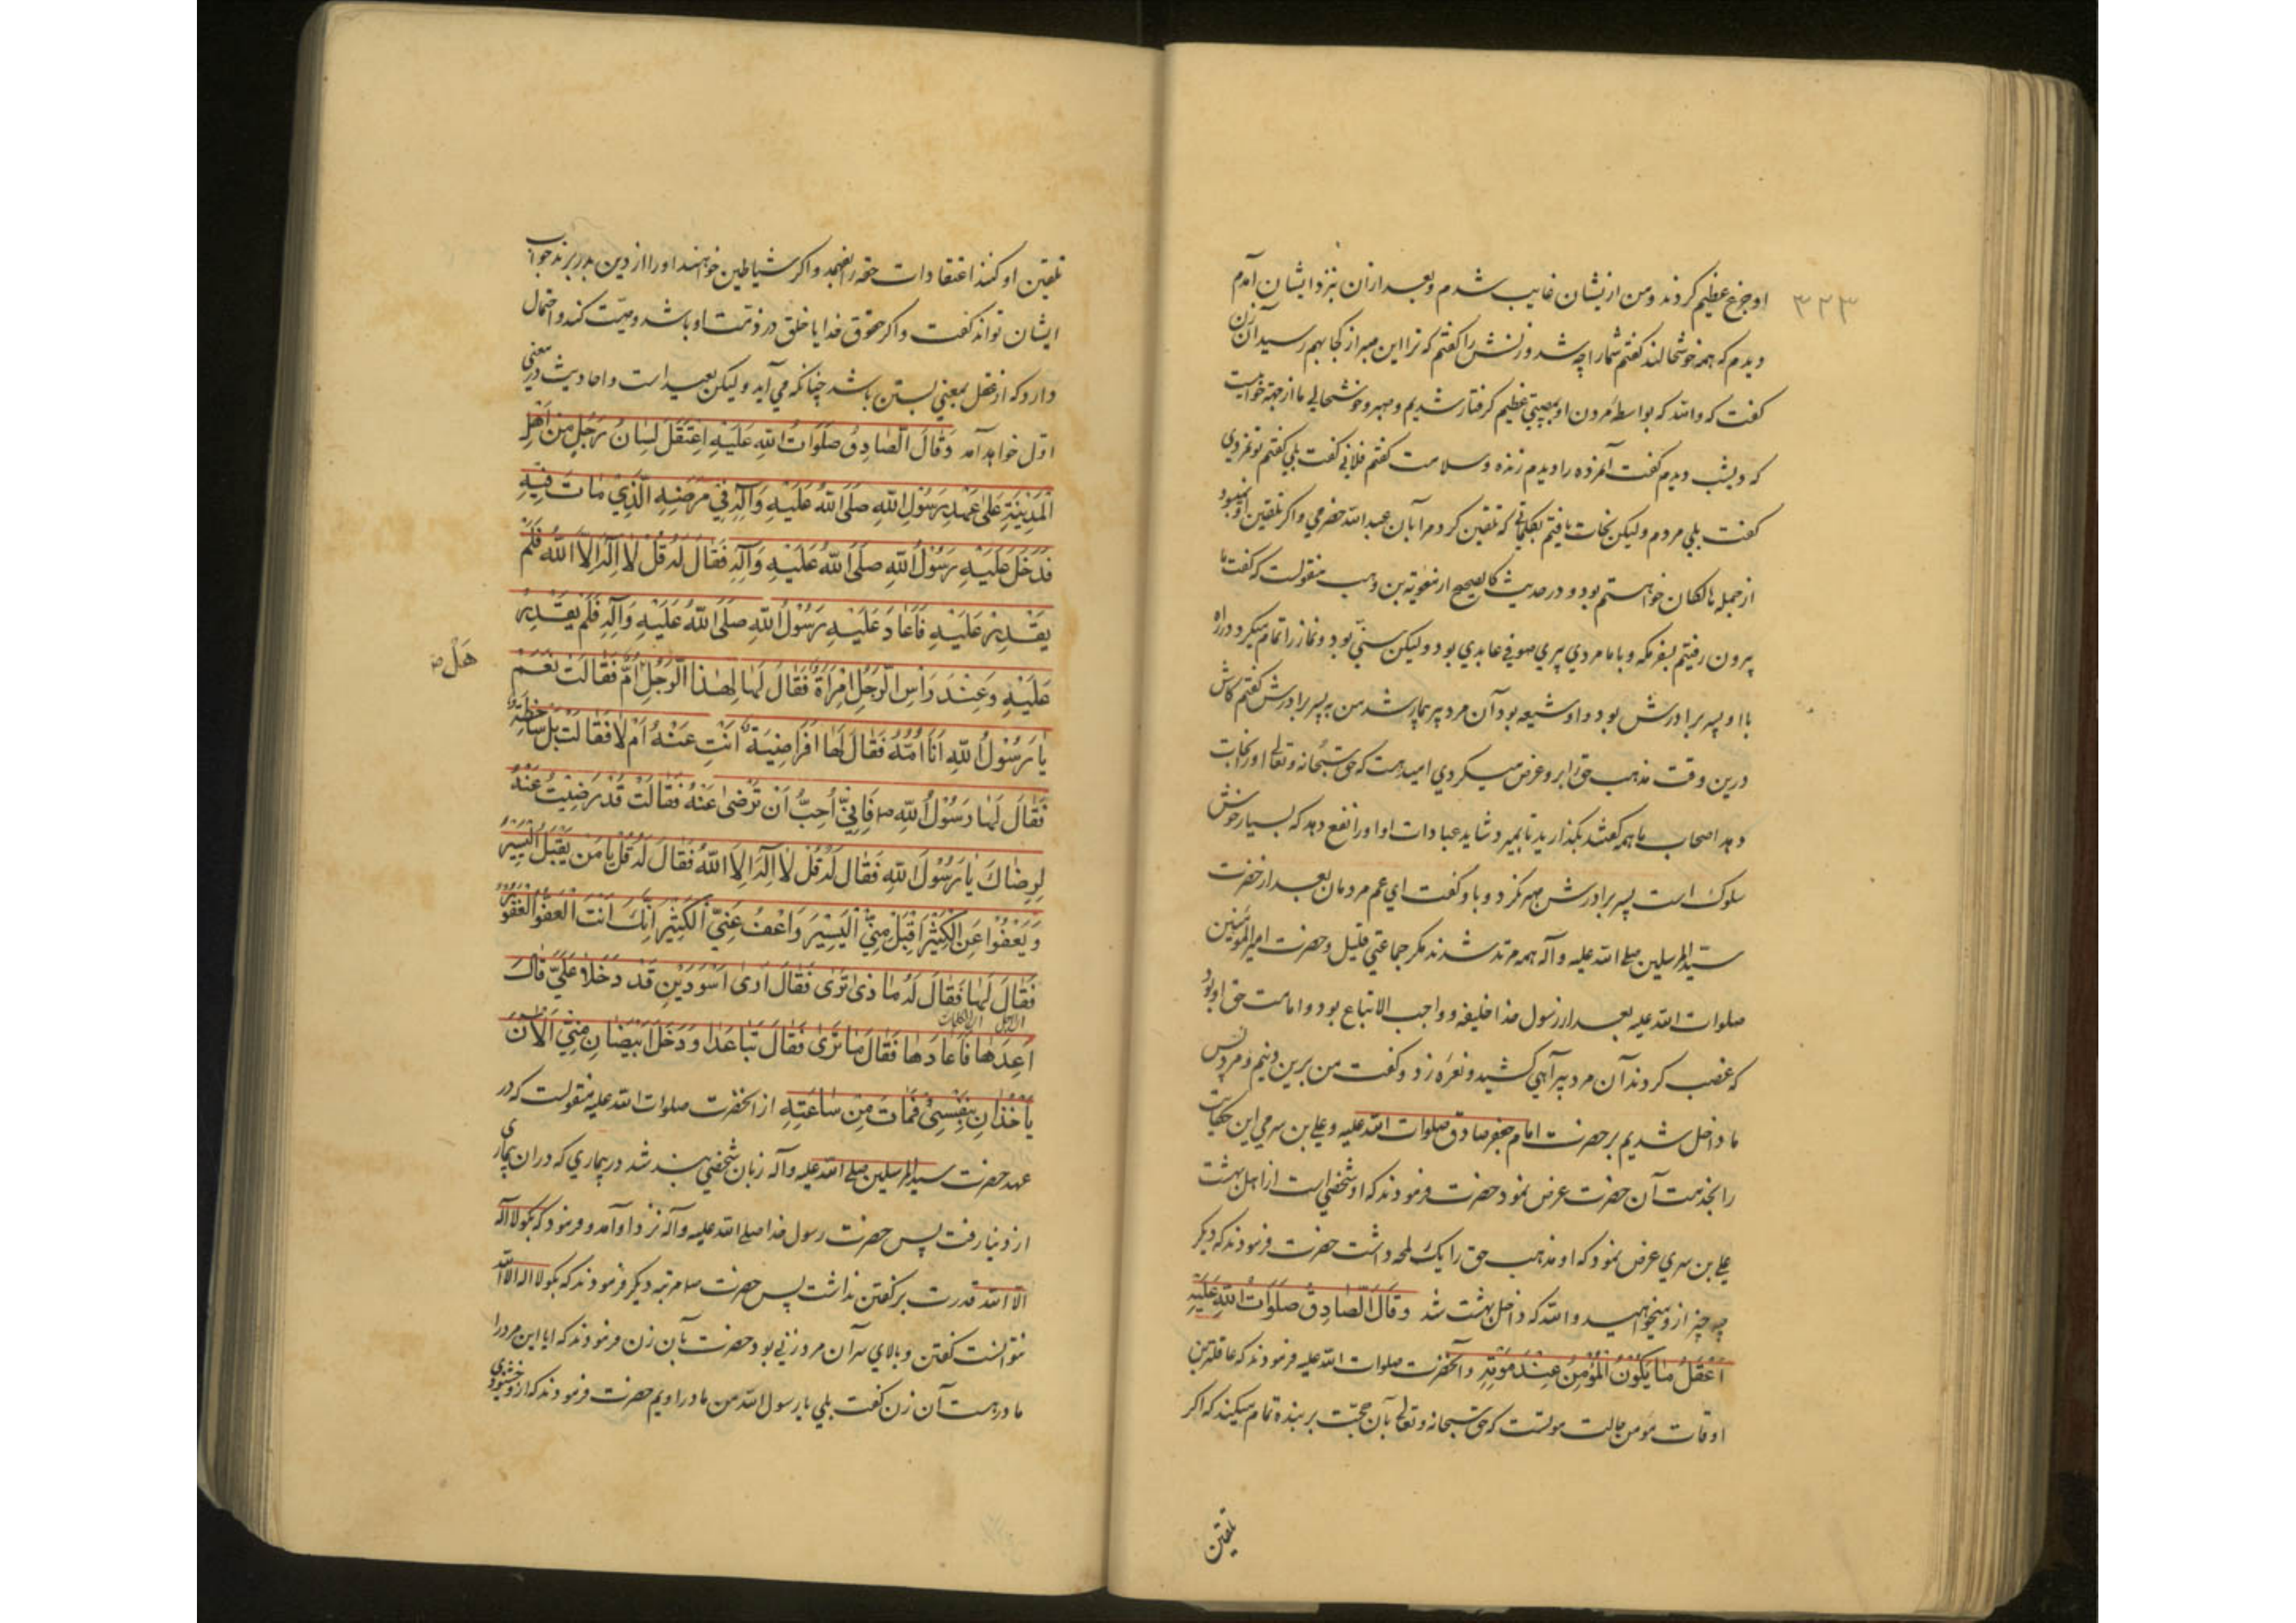 ۳۲۳
او جزع عظیم کردند و من از یشان غایب شدم و بعد ازان بنزد ایشان آمدم
دیدم که همه خوشحالند کفتم شما را چه شد و زنش را کفتم که ترا این صبر از کجا بهم رسید آن زن
کفت که والله که بواسطه مردن او بمصیبتی عظیم کرفتار شدیم و صبر و خوشحالی ما از جهة خوابیست
که دیشب دیدم کفت آنمرده را دیدم زنده و سلامت کفتم فلانی کفت بلی کفتم تو نمردی
کفت بلی مردم و لیکن نجات یافتم بکلماتی که تلقین کرد مرا بآن عبدالله حضرمی و اکر تلقین او نمیبود
از جمله هالکان خواستم بود و در حدیث کالصحیح از معویة بن وهب منقولست که کفت ما
بیرون رفتیم بسفر مکه و با ما مردی پیری صوفی عابدی بود و لیکن سنّی بود و نماز را تمام میکرد در راه
با او پسر برادرش بود و او شیعه بود آن مرد پیر بیمار شد من به پسر برادرش کفتم کاش
درین وقت مذهب حق را برو عرض میکردی امید هست که حق سبحانه و تعالی او را نجات
دهد اصحاب ما همه کفتند بکذارید تا بمیرد شاید عبادات او او را نفع دهد که بسیار خوش
سلوک است پسر برادرش صبر نکرد و باو کفت ای عم مردمان بعد از حضرت
سیّد المرسلین صلی الله علیه و آله همه مرتد شدند مکر جماعتی قلیل و حضرت امیر المؤمنین
صلوات الله علیه بعد از رسول خدا خلیفه و واجب الاتباع بود و امامت حق او بود
که غصب کردند آن مرد پیر آهی کشید و نعره زد و کفت من برین دینم و مرد پس
ما داخل شدیم بر حضرت امام جعفر صادق صلوات الله علیه و علی بن سری این حکایت
را بخدمت آن حضرت عرض نمود حضرت فرمودند که او شخصی است از اهل بهشت
علی بن سری عرض نمود که او مذهب حق را یک لمحه داشت حضرت فرمودند که دیکر
چه چیز از و میخواهید والله که داخل بهشت شد وَقَالَ الصّادِقُ صَلَوَاتُ اللهِ عَلَیْهِ
اَعْقَلُ مٰا یَکُونُ الْمُؤْمِنُ عِنْدَ مَوْتِهِ و آنحضرت صلوات الله علیه فرمودند که عاقلترین
اوقات مؤمن حالت موتست که حق سبحانه و تعالی بآن حجّت بر بنده تمام میکیند که اکر
تلقین
تلقین او کنند اعتقادات حقه را بفهمد و اکر شیاطین خواهند او را از دین بدر برند جواب
ایشان تواند کفت و اکر حقوق خدا یا خلق در ذمّت او باشد وصیّت کند و احتمال
دارد که از عقل بمعنی بستن باشد چنانکه می آید و لیکن بعید است و احادیث درین معنی
اوّل خواهد آمد وَقَالَ الصّادِقُ صَلَوَاتُ اللهِ عَلَیْهِ اِعْتَقَلَ لِسَانُ رَجُلٍ مِنْ اَهْلِ
الْمَدِیْنَةِ عَلیٰ عَهْدِ رَسُوْلِ اللهِ صَلَّی اللهُ عَلَیْهِ وَآلِهِ فِیْ مَرَضِهِ الَّذِی مٰاتَ فِیْهِ
فَدَخَلَ عَلَیْهِ رَسُوْلُ اللهِ صَلَّی اللهُ عَلَیْهِ وَآلِهِ فَقَالَ لَهُ قُلْ لاٰ اِلٰهَ اِلاَّ اللهُ فَلَمْ
یَقْدِرْ عَلَیْهِ فَاَعَادَ عَلَیْهِ رَسُوْلُ اللهِ صَلَّی اللهُ عَلَیْهِ وَآلِهِ فَلَمْ یَقْدِرْ
عَلَیْهِ وَعِنْدَ رَاْسِ الرَّجُلِ اِمْرَاَةٌ فَقَالَ لَهَا لِهٰذَا الرَّجُلِ اُمٌّ فَقَالَتْ نَعَمْ
هَلْ
یٰا رَسُوْلَ اللهِ اَنَا اُمُّهُ فَقَالَ لَهَا اَفَرَاضِیَةٌ اَنْتِ عَنْهُ اَمْ لاٰ فَقَالَتْ بَلْ سَاخِطَةٌ
فَقَالَ لَهَا رَسُوْلُ اللهِ ص فَاِنِّیْ اُحِبُّ اَنْ تَرْضیٰ عَنْهُ فَقَالَتْ قَدْ رَضِیْتُ عَنْهُ
لِرِضَاكَ یٰا رَسُوْلَ اللهِ فَقَالَ لَهُ قُلْ لاٰ اِلٰهَ اِلاَّ اللهُ فَقَالَ لَهُ قُلْ یٰا مَنْ یَقْبَلُ الْیَسِیْرَ
وَیَعْفُوْا عَنِ الْکَثِیْرِ اِقْبَلْ مِنِّی الْیَسِیْرَ وَاعْفُ عَنِّی الْکَثِیْرَ اِنَّكَ اَنْتَ الْعَفُوُّ الْغَفُوْرُ
فَقَالَ لَهَا فَقَالَ لَهُ مٰا ذٰا تَرٰی فَقَالَ اَرٰی اَسْوَدَیْنِ قَدْ دَخَلاٰ عَلَیَّ قَالَ
اَعِدْهَا فَاَعَادَهَا فَقَالَ مَا تَرٰی فَقَالَ تَبَاعَدَا وَدَخَلَ اَبْیَضٰانِ مِنِّی الْاٰنَ
یَأْخُذٰانِ بِنَفْسِیْ فَمٰاتَ مِنْ سٰاعَتِهِ از آنحضرت صلوات الله علیه منقولست که در
عهد حضرت سید المرسلین صلی الله علیه و آله زبان شخصی بند شد در بیماری که دران بیماری
از دنیا رفت پس حضرت رسول خدا صلی الله علیه و آله نزد او آمد و فرمود که بکو لا اله
الا الله قدرت بر کفتن نداشت پس حضرت مرتبه دیکر فرمودند که بکو لا اله الا الله
نتوانست کفتن و بالای سر آن مرد زنی بود حضرت بآن زن فرمودند که ایا این مرد را
مادر هست آن زن کفت بلی یا رسول الله من مادر اویم حضرت فرمودند که از و خشنودی